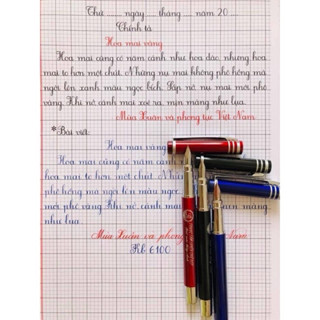 Thứ ..... ngày ..... tháng ..... năm 20 ....
Chính tả
Hoa mai vàng
Hoa mai cũng có năm cánh như hoa đào, nhưng hoa
mai to hơn một chút. Những nụ mai không phô hồng mà
ngời lên xanh màu ngọc bích. Sắp nở nụ mai mới phô
vàng. Khi nở cánh mai xoè ra mịn màng như lụa.
Mùa Xuân và phong tục Việt Nam
*Bài viết:
Hoa mai vàng
Hoa mai cũng có năm cánh
hoa mai to hơn một chút. Nhữn
phô hồng mà ngời lên màu ngọc
mới phô vàng Khi nở cánh mai mịn màng
như lụa.
Mùa Xuân và phong Nam